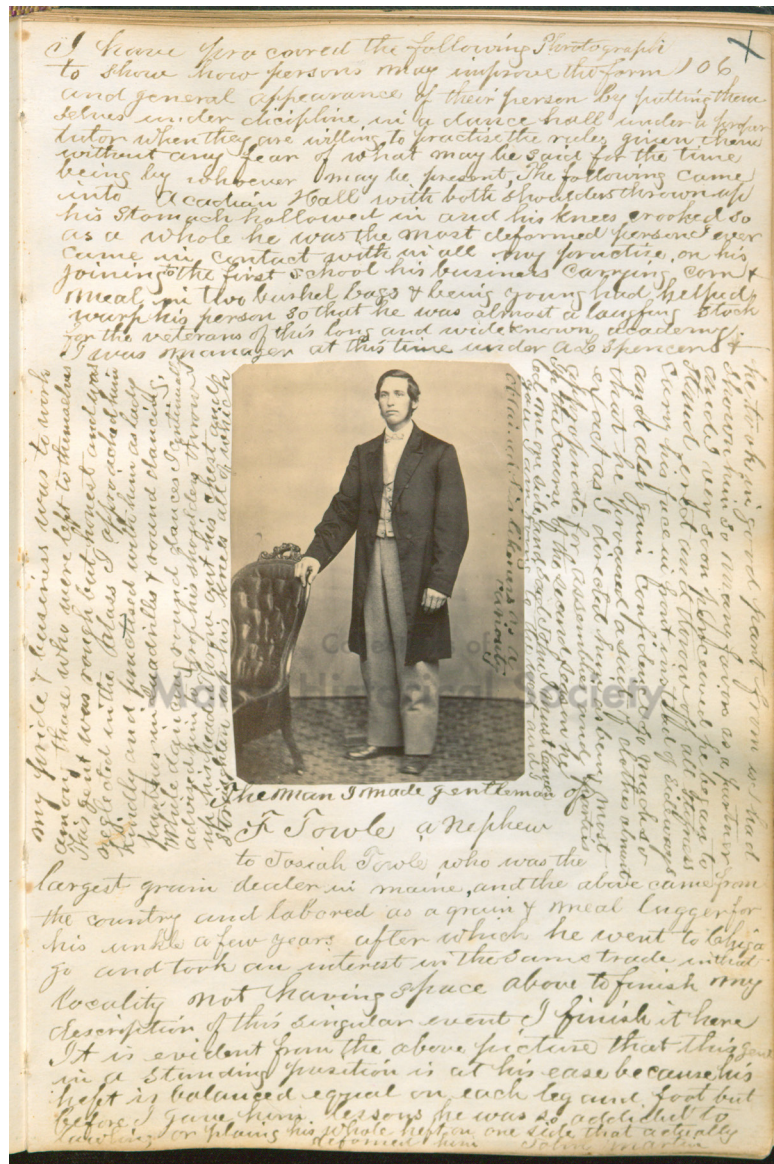 I have procovred the following Photographt
to show how persons may improve the form 106
and general appearance of their person by putting them
selves under dicipline in a dance hall under a proper
tutor when they are willing to practise the rules given them
without any fear of what may be said for the time
being by whoever may be present, The following came
into Acadian Hall with both shoulders thrown up
his Stomach hollowed in and his knees crooked so
as a whole he was the most deformed person I ever
came in contact with in all my practice, on his
joining the first School his business carrying corn &
meal in two bushel bags & being young had helped
warp his person so that he was almost a laufing Stock
for the veterans of this long and wide known academy.
I was manager at this time under A L Spencers &
my pride & business was to work
among those who were left to themselves
This gent was rough but honest and was
neglected in the Class I approached him
kindly and practised with him as lady
partner in quadrills & round dancing,
While dancing round dances I continually
advised him to drop his shoulders throw
up his head throw out his chest and
straighten up his knees all of which
he took in good part from is I had
shown him so many favors as a partner
and I very soon perceived he began to
Stand erect and throw off all stiffness
carry his face in front instead of sideways
and also gain confidence so much so
that he procured a suit of clothes almost
exact as I directed him as being most
appropriate for assemblies and parties
In the course of the second season he
obtain in his labours in a
The Man I made gentleman of
F Towle a Nephew
to Josiah Towle who was the
largest grain dealer in maine, and the above came from
the country and labored as a grain & meal lugger for
his unkle a few years after which he went to Chica
go and took an interest in the same trade in that
locality not having space above to finish my
description of this singular event I finish it here
It is evident from the above picture that this gent
in a standing position is at his ease because his
heft is balanced equal on each leg and foot but
before I gave him lessons he was so addicted to
or plaing his whole heft on one side that actually
deformed him John Martin
Collections of
Maine Historical Society